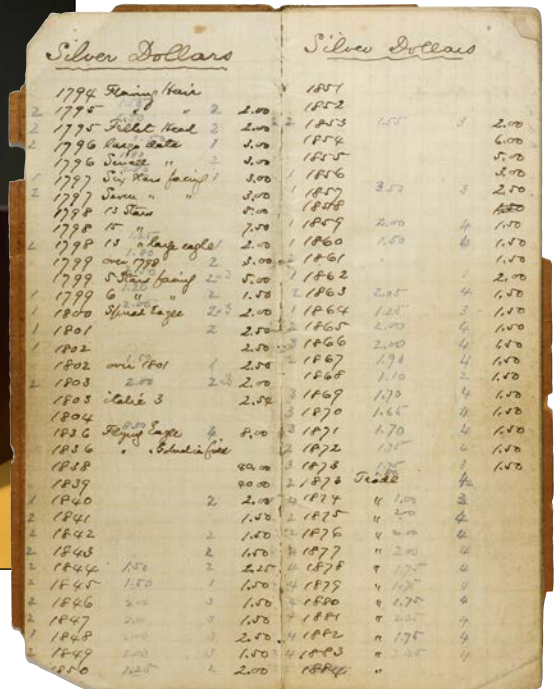 Silver Dollars
1794 Flowing Hair
2 1795 " " 2 2.00
2 1795 Fillet Head 2 2.00
2 1796 large date 1 3.00
1796 Small " 2 3.00
1797 Six Stars facing 1 3.00
2 1797 Seven " " 3.00
1798 13 Stars 5.00
1798 15 " 7.50
2 1798 13 " large eagle 1 2.00
1799 over 1798 2 3.00
1799 5 Stars facing 2-3 5.00
1 1799 6 " " 2 1.50
1 1800 Spread Eagle 2-3 2.00
1 1801 2 2.50
1 1802 2.50
1802 over 1801 1 2.50
2 1803 2.00 2-3 2.00
1803 italic 3 2.50
1804
1836 Flying Eagle 4 8.00
1836 " Gobrecht in field
1838 80.00
1839 40.00
1 1840 2 2.00
2 1841 1.50
2 1842 2 1.50
2 1843 2 1.50
2 1844 1.50 2 2.25
2 1845 1.50 1 1.50
2 1846 2.00 3 1.50
2 1847 2.00 3 1.50
1 1848 2.00 3 2.50
2 1849 2.00 3 1.50
1850 1.25 2 2.00
Silver Dollars
1851
1852
2 1853 1.55 3 2.00
1854 6.00
1855 5.00
1 1856 3.00
1 1857 3.50 3 2.50
1858
1 1859 2.00 4 1.50
1 1860 1.50 4 1.50
2 1861 1.50
1 1862 1 2.00
2 1863 2.05 4 1.50
1 1864 1.25 3 1.50
2 1865 2.00 4 1.50
3 1866 2.00 4 1.50
2 1867 1.90 4 1.50
1868 1.10 2 1.50
3 1869 1.70 4 1.50
3 1870 1.65 4 1.50
3 1871 1.70 4 1.50
2 1872 1.75 4 1.50
3 1873 1.75 3 1.50
2 1873 Trade 4
4 1874 " 1.00 3
2 1875 " 2.00 4
2 1876 " 2.00 4
4 1877 " 2.00 4
4 1878 " 1.75 4
4 1879 " 1.75 4
4 1880 " 1.75 4
4 1881 " 2.25 4
4 1882 " 1.75 4
4 1883 " 2.25 4
1884 "